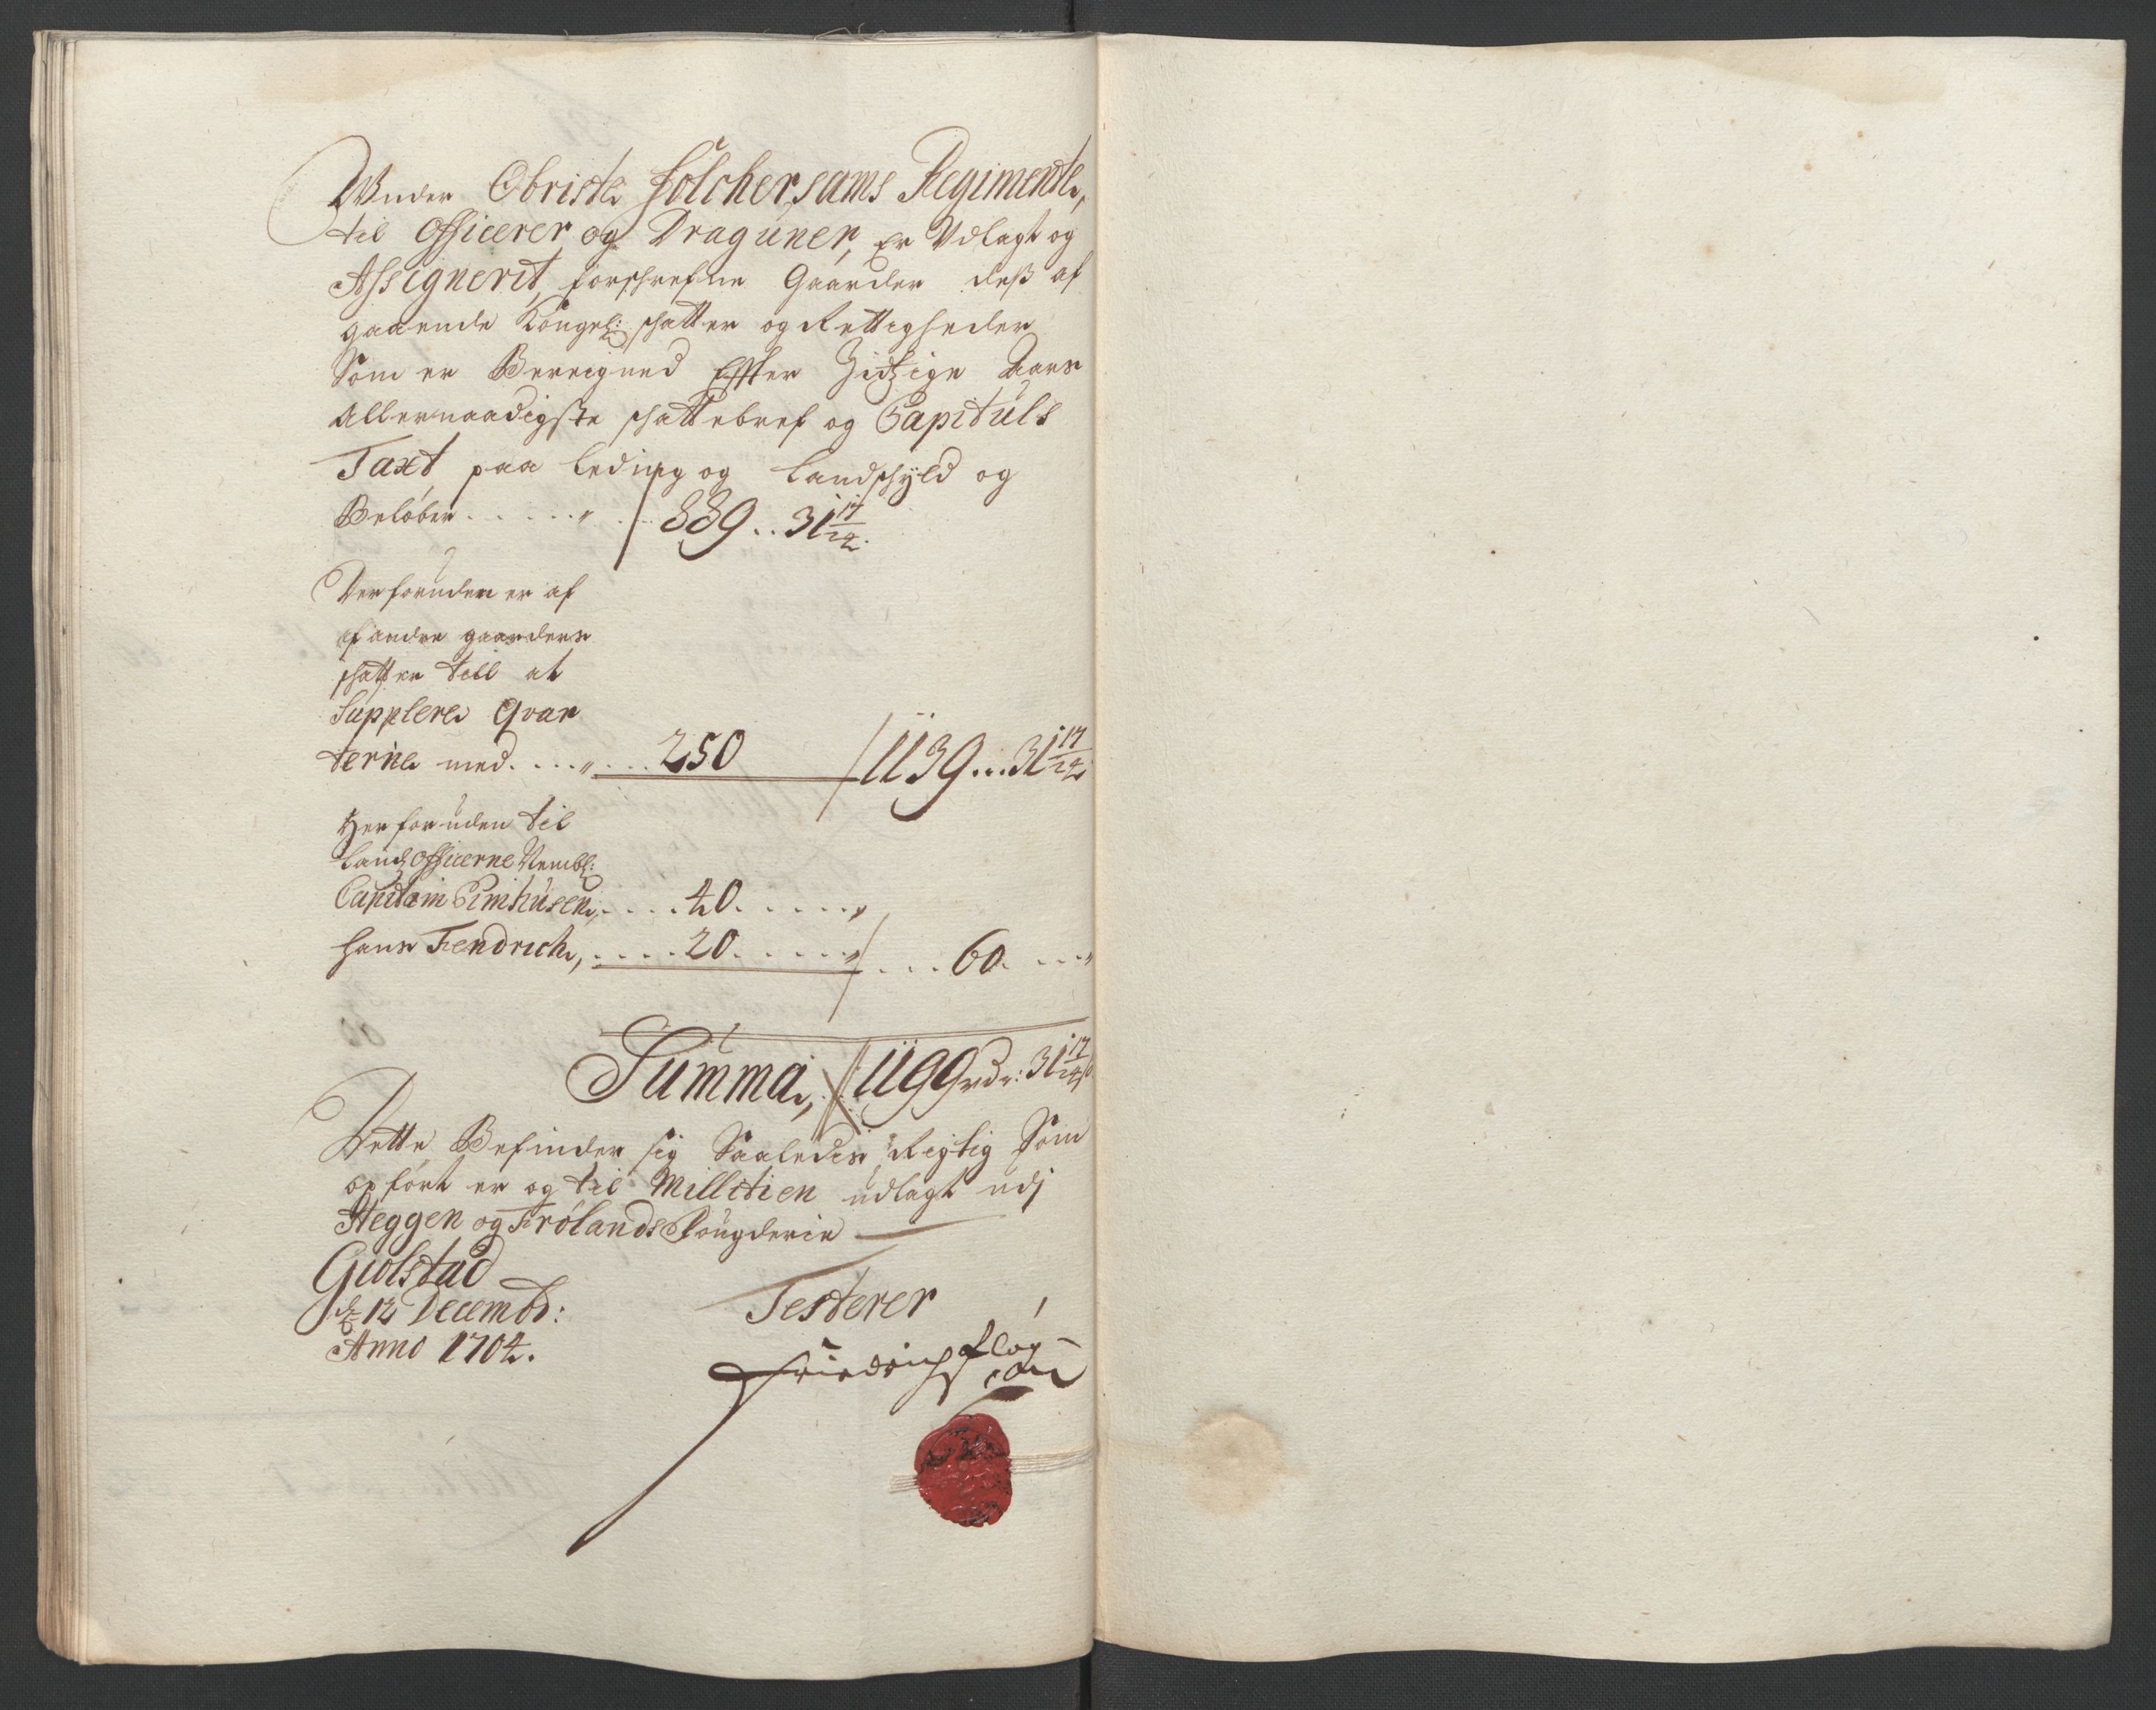 Wnder Obriste Folchersams Regimente,
til Officerer og Dragúner, Er Udlagt og
Assignerit, forschrefne Gaarder deß af
gaaende Kongel: schatter og Rettigheder
Som er Bereigned Effter Jidtzige Aars
Allernaadigste schattebref og Capituls
Taxt paa leding og landschyld og
Beløber . . . . . " . . . 889 . . 31 17/24.
Der foruden er af
af andre gaarders
schatter till at
Supplere Qvar
terne med . . . . " . . . 250 1139 . . . 31 17/24
Her foruden til
land Officerne Nembl:
Capitain . . . . 40 . . . . . "
hans Fendrich, . . . . . 20 . . . . . " . . . 60. . . . "
Summa, 1199 rdr: 31 17/24
Dette Befindes sig Saaledis Rigtig Som
opført er og til Millitien udlagt udj
Heggen og Frølands Fougderie
Giølstad
d 12 Decembr:
Anno 1704.
Testerer
Friedrich